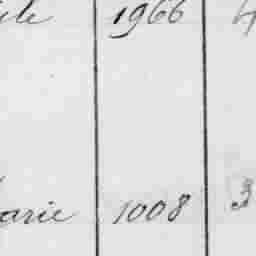 ile 1966 4
arie 1008 3